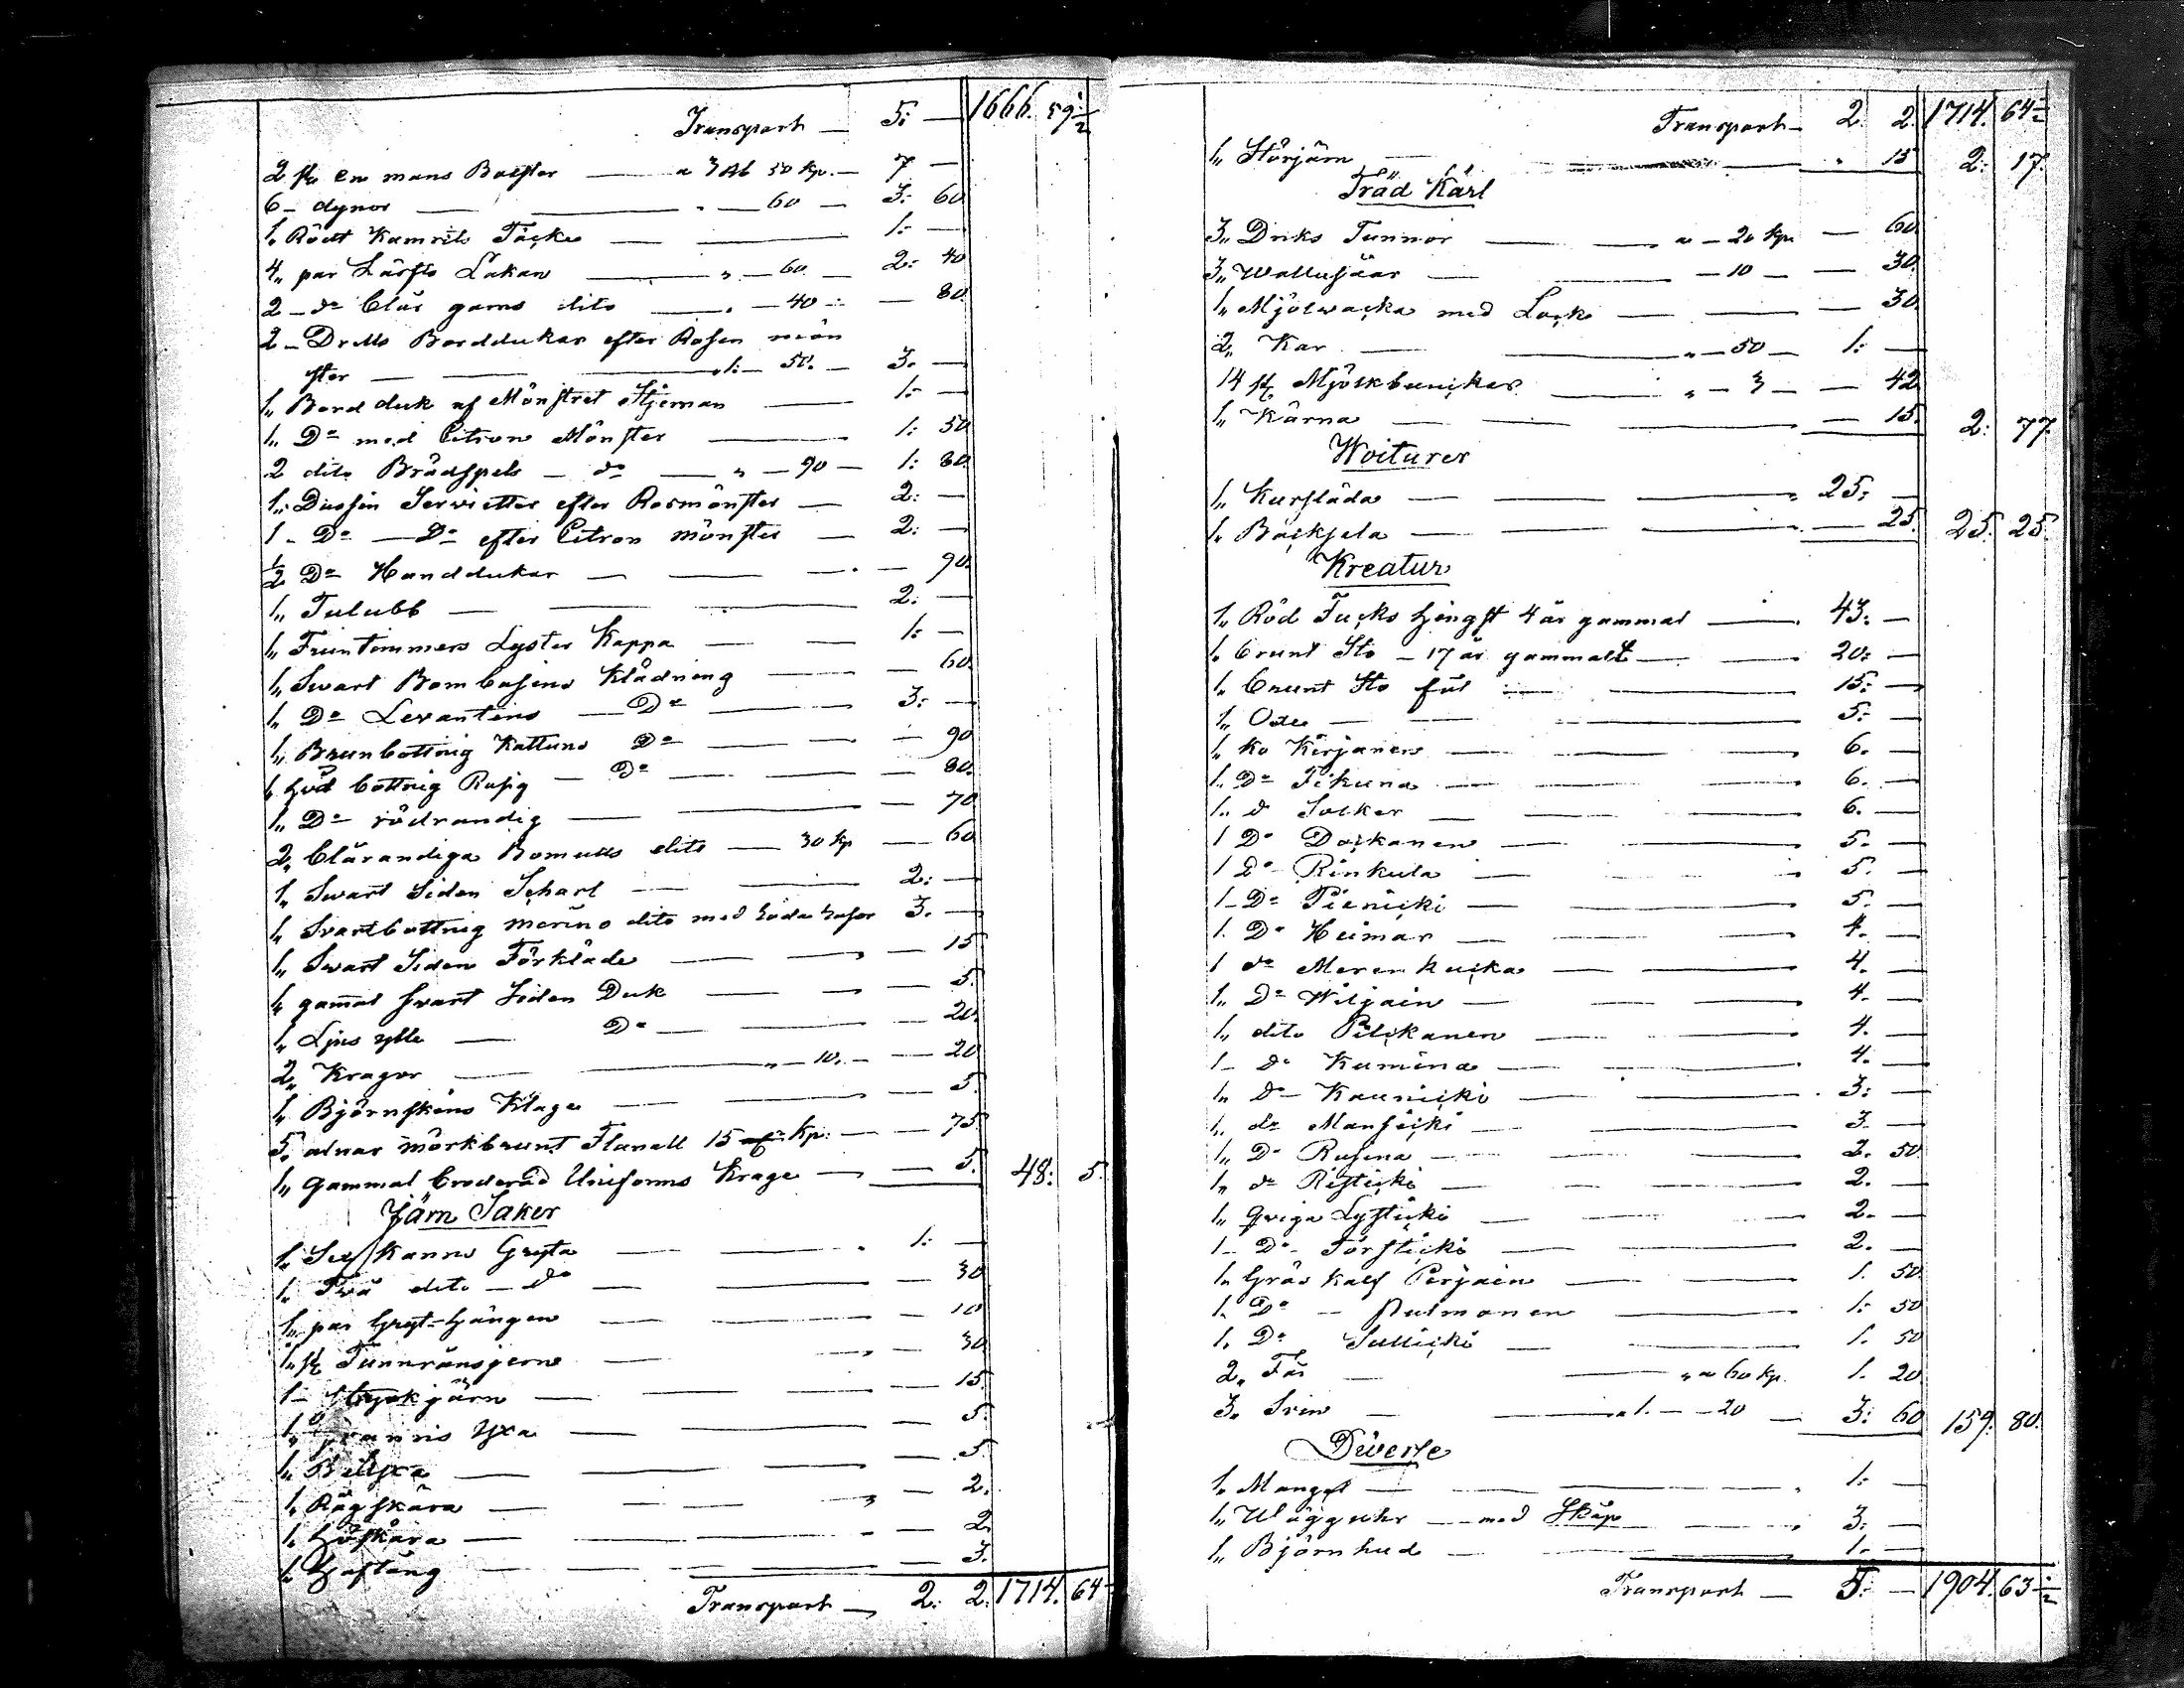 Transport — 5: — 1666. 59 1/2
2 st en mans Bolster — a 3 Rb 50 Kp. — 7 —
6 – dynor — " — 60 — 3: 60
1. Rödt Kamrits Täcke — 1: —
4„ par Lärfts Lakan — " — 60 — 2: 40
2 – do Blår garns dito — " — 40 — 80
2 – Drells Borddukar efter Rosen mön
ster — " 1: — 50. — 3. —
1„ Bord duk af Mönstret Stjernan — 1: —
1„ Do med Citron Mönster — 1: 50
2 dito Brädspels – do — " — 90 — 1: 80.
1„ Dussin Servietter efter Rosmönster — 2: —
1 – Do — Do efter Citron mönster — 2: —
1/2 Do Handdukar — 90.
1„ Tulubb — 2: —
1„ Fruntimmers Lyster Kappa — 1: —
1„ Swart Bombasins Klädning — 60
1„ Do Levantins — Do — 3: —
1„ Brunbottnig Kattuns Do — 90
1„ hvit bottnig Rusig — Do — 80.
1„ Do rödrandig — 70
2„ blårandiga Bomulls dito — 30 Kp — 60
1„ Swart Siden Scharl — 2: —
1„ Svartbottnig merino dito med röda 3. —
1„ Swart Siden Förkläde — 15
1„ gamal svart Siden Duk — 5.
1„ Ljus ylle — Do — 20.
2„ Kragor — " — 10. — 20
1„ Björnskins Krage — 5.
5. alnar mörkbrunt Flanell 15 Kp. — 75
1„ gammal broderad Uniforms Krage — 5. 48: 5.
Järn Saker
1. Sex Kanns Gryta — 1: —
1. Två dito – do — 30
1„ par Gryt-hängen — 10
1„ st Tunnränsjern — 30
1 – Strykjärn — 15.
1„ Yxa — 5.
1„ Bilyxa — 5.
1. Rågskära — 2.
1. höskära — 2.
1. — 3.
Transport — 2: 2. 1714. 64 1/2
Transport — 2. 2. 1714. 64 1/2
1„ Störjärn — " 15 2: 17.
Träd Kärl
3„ Dricks Tunnor — a — 20 Kp — 60.
3„ Wattusåar — 10 — 30.
1„ Mjölwacka med Lock — 30.
2„ Kar — " — 50 — 1: —
14 st Mjölkbunckar — " — 3 — 42
1„ Kärna — 15. 2: 77.
Woiturer
1„ Kursläda — 25: —
1. Bäcksela — 25. 25. 25.
Kreatur
1„ Röd Fucks hingst 4 år gammal — 43: —
1. brunt Sto – 17 år gammalt — 20: —
1„ brunt Sto föl — 15: —
1„ Oxe — 5: —
1„ Ko Kirjanen — 6. —
1„ Do Fikuna — 6. —
1„ do Solker — 6. —
1 Do Dockanen — 5. —
1 Do Rinkula — 5. —
1 – Do Pienicki — 5. —
1. Do Heimar — 4. —
1 do Merenkucka — 4. —
1„ Do Wiljain — 4. —
1„ dito Pilckanen — 4. —
1 – do Kumina — 4. —
1„ do Kaunicki — 3: —
1„ do Mansicki — 3. —
1„ Do Rusina — 2. 50
1„ do Risticki — 2. —
1„ Qviga Lysticki — 2. —
1 – Do Torsticki — 2. —
1„ Gräs kalf Perjain — 1. 50
1. Do — Pulmonen — 1: 50
1. Do Sullicki — 1. 50
2„ Får — " a 60 Kp. 1. 20
3. Svin — a 1. — 20 — 3: 60 159. 80.
Diverse
1. Mangel — 1: —
1„ Wägguhr — med Skåp — 3: —
1„ Björnhud — 1. —
Transport — 5. — 1904. 63 1/2